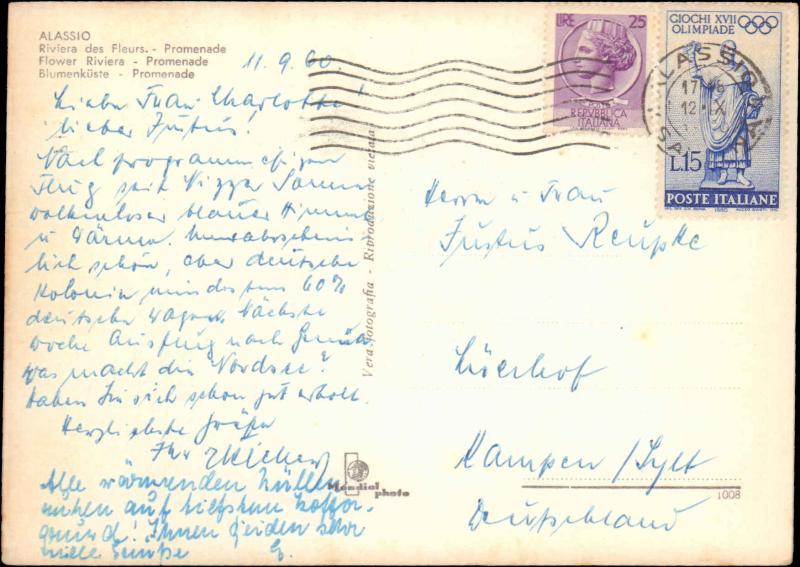 ALASSIO
Riviera des Fleurs. - Promenade
Flower Riviera - Promenade
Blumenküste - Promenade
11.9.60.
Liebe Frau Charlotte!
lieber Justus!
Nach programmässigem
Flug seit Nizza Sonne
wolkenloser blauer Himmel
u Wärme. landschaft
lich schön, aber deutsche
Kolonie mindestens 60%
deutsche Wagen. Nächste
Woche Ausflug nach Genua
was macht die Nordsee?
haben Sie sich schon gut erholt.
Herzlichste Grüße
Ihr
Alle wärmenden Hüllen
ruhen auf tiefstem Koffer-
grund! Ihnen beiden sehr
viele Grüße
Vera fotografia - Riproduzione vietata
Mondial photo
LIRE 25
REPVBBLICA
ITALIANA
GIOCHI XVII
OLIMPIADE
L.15
POSTE ITALIANE
1960
ALASSIO
17
12.IX
Herrn u Frau
Justus Reupke
Kampen/Sylt
Deutschland
1008